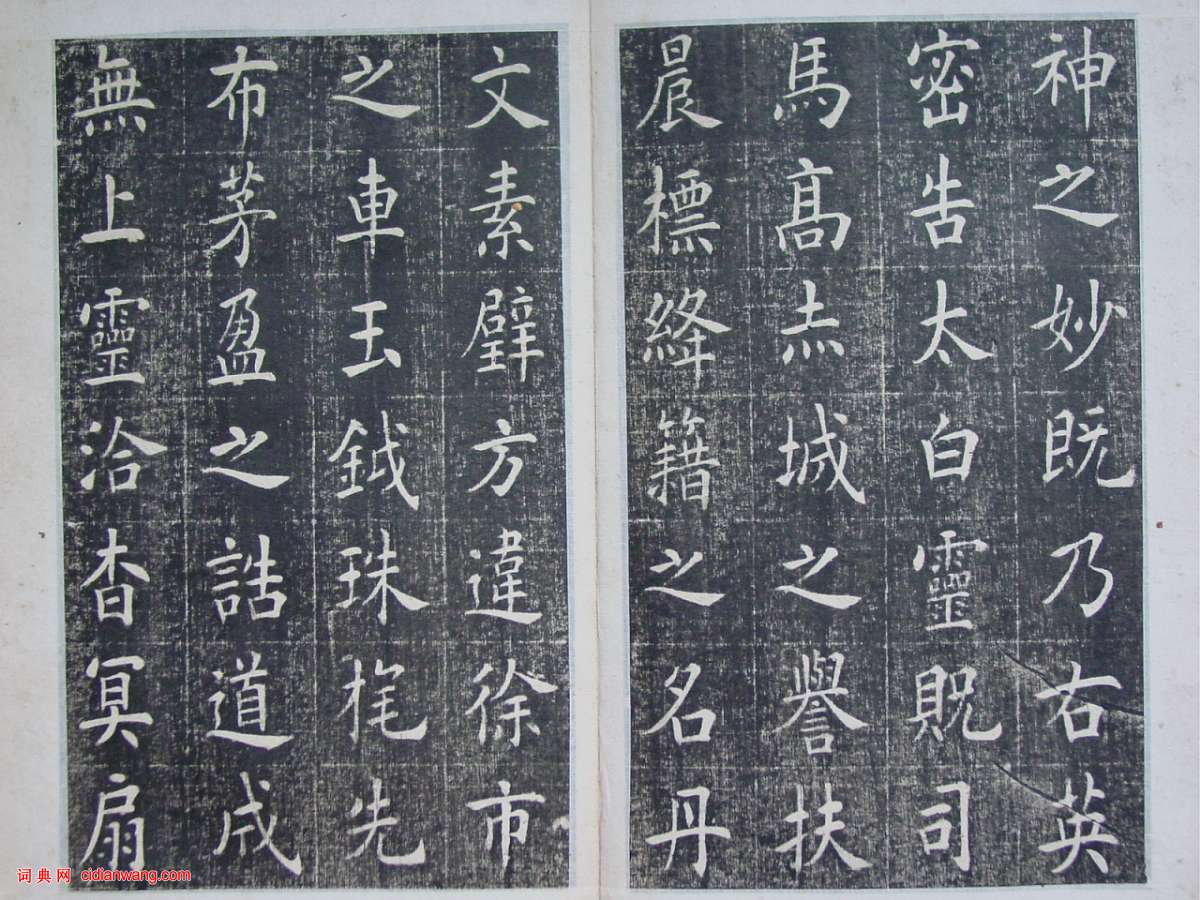 神之妙既乃右英
密告太白靈貺司
馬高志城之譽扶
晨標絳籍之名丹
文素壁方違徐市
之車玉鉞珠旄先
布茅盈之誥道成
無上靈洽杳冥扇
词典网 cidianwang.com